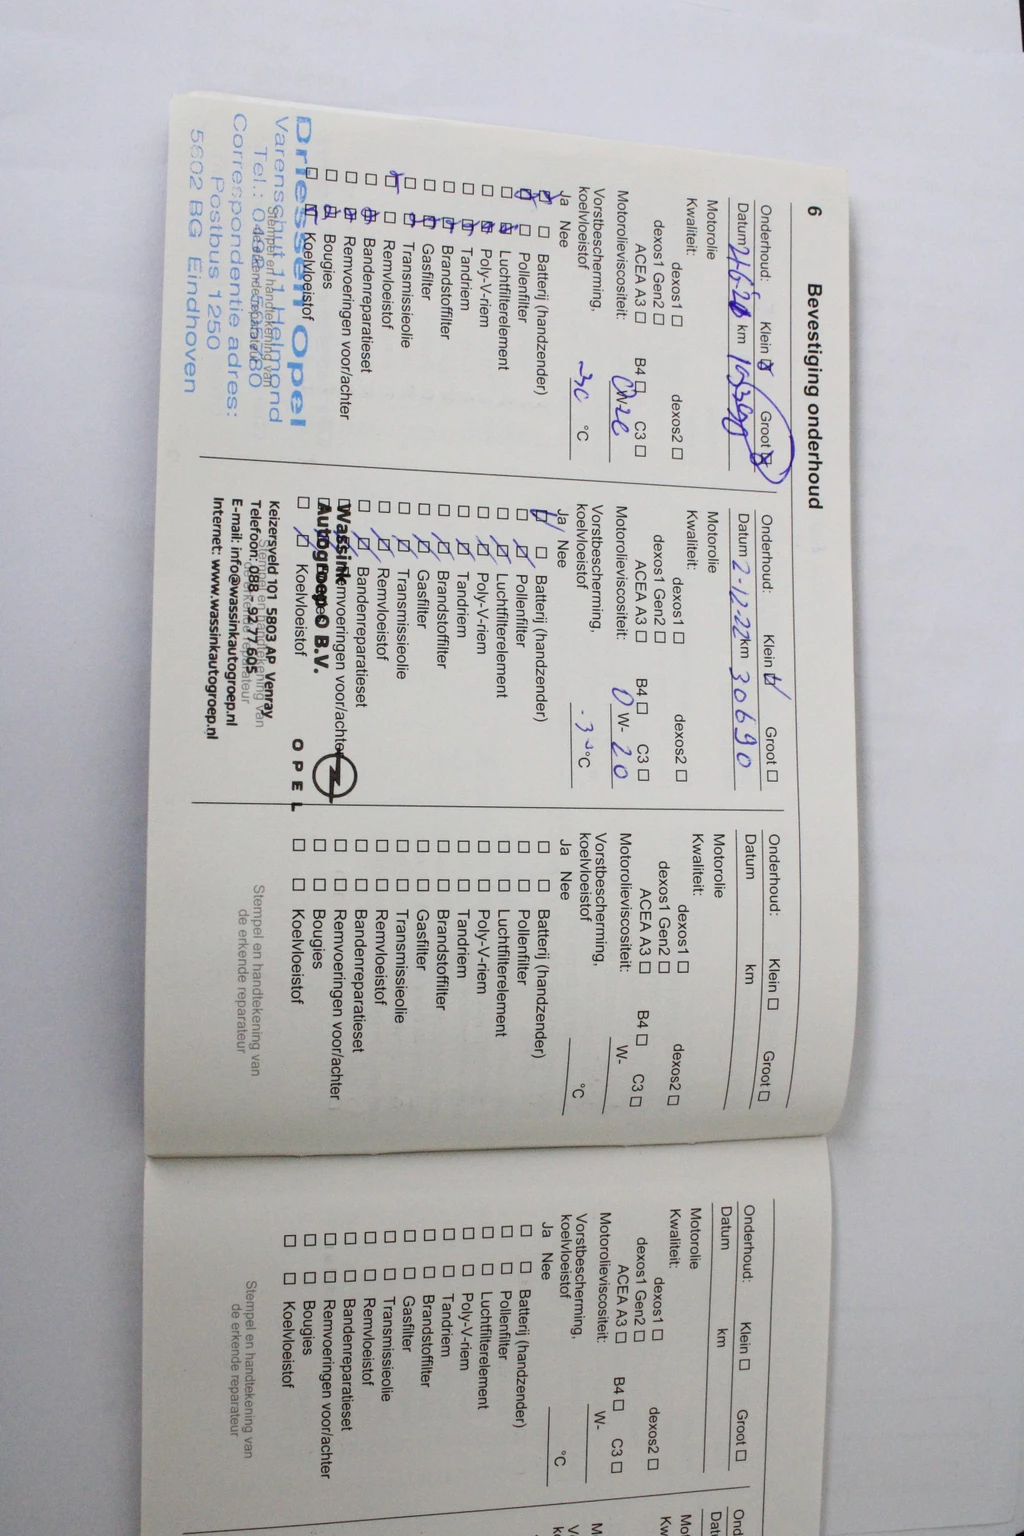 6 Bevestiging onderhoud
Onderhoud: Klein Groot
Datum km
Motorolie
Kwaliteit: dexos1 dexos2
dexos1 Gen2
ACEA A3 B4 C3
Motorolieviscositeit: 0W-20
Vorstbescherming,
koelvloeistof: °C
Ja Nee
Batterij (handzender)
Pollenfilter
Luchtfilterelement
Poly-V-riem
Tandriem
Brandstoffilter
Gasfilter
Transmissieolie
Remvloeistof
Bandenreparatieset
Remvoeringen voor/achter
Bougies
Koelvloeistof
Driessen Opel
Varenschut 11 Helmond
Tel.:
Correspondentie adres:
Postbus 1250
5602 BG Eindhoven
Stempel en handtekening van
de erkende reparateur
Onderhoud: Klein Groot
Datum 2-12-22 km 30690
Motorolie
Kwaliteit: dexos1 dexos2
dexos1 Gen2
ACEA A3 B4 C3
Motorolieviscositeit: 0 W- 20
Vorstbescherming,
koelvloeistof °C
Ja Nee
Batterij (handzender)
Pollenfilter
Luchtfilterelement
Poly-V-riem
Tandriem
Brandstoffilter
Gasfilter
Transmissieolie
Remvloeistof
Bandenreparatieset
Remvoeringen voor/achter
Koelvloeistof
Wassink
Autogroep O B.V.
OPEL
Keizersveld 101 5803 AP Venray
Telefoon: 088 - 92 77 605
E-mail: info@wassinkautogroep.nl
Internet: www.wassinkautogroep.nl
Stempel en handtekening van
de erkende reparateur
Onderhoud: Klein Groot
Datum km
Motorolie
Kwaliteit: dexos1 dexos2
dexos1 Gen2
ACEA A3 B4 C3
Motorolieviscositeit: W-
Vorstbescherming,
koelvloeistof °C
Ja Nee
Batterij (handzender)
Pollenfilter
Luchtfilterelement
Poly-V-riem
Tandriem
Brandstoffilter
Gasfilter
Transmissieolie
Remvloeistof
Bandenreparatieset
Remvoeringen voor/achter
Bougies
Koelvloeistof
Stempel en handtekening van
de erkende reparateur
Onderhoud: Klein Groot
Datum km
Motorolie
Kwaliteit: dexos1 dexos2
dexos1 Gen2
ACEA A3 B4 C3
Motorolieviscositeit: W-
Vorstbescherming,
koelvloeistof °C
Ja Nee
Batterij (handzender)
Pollenfilter
Luchtfilterelement
Poly-V-riem
Tandriem
Brandstoffilter
Gasfilter
Transmissieolie
Remvloeistof
Bandenreparatieset
Remvoeringen voor/achter
Bougies
Koelvloeistof
Stempel en handtekening van
de erkende reparateur